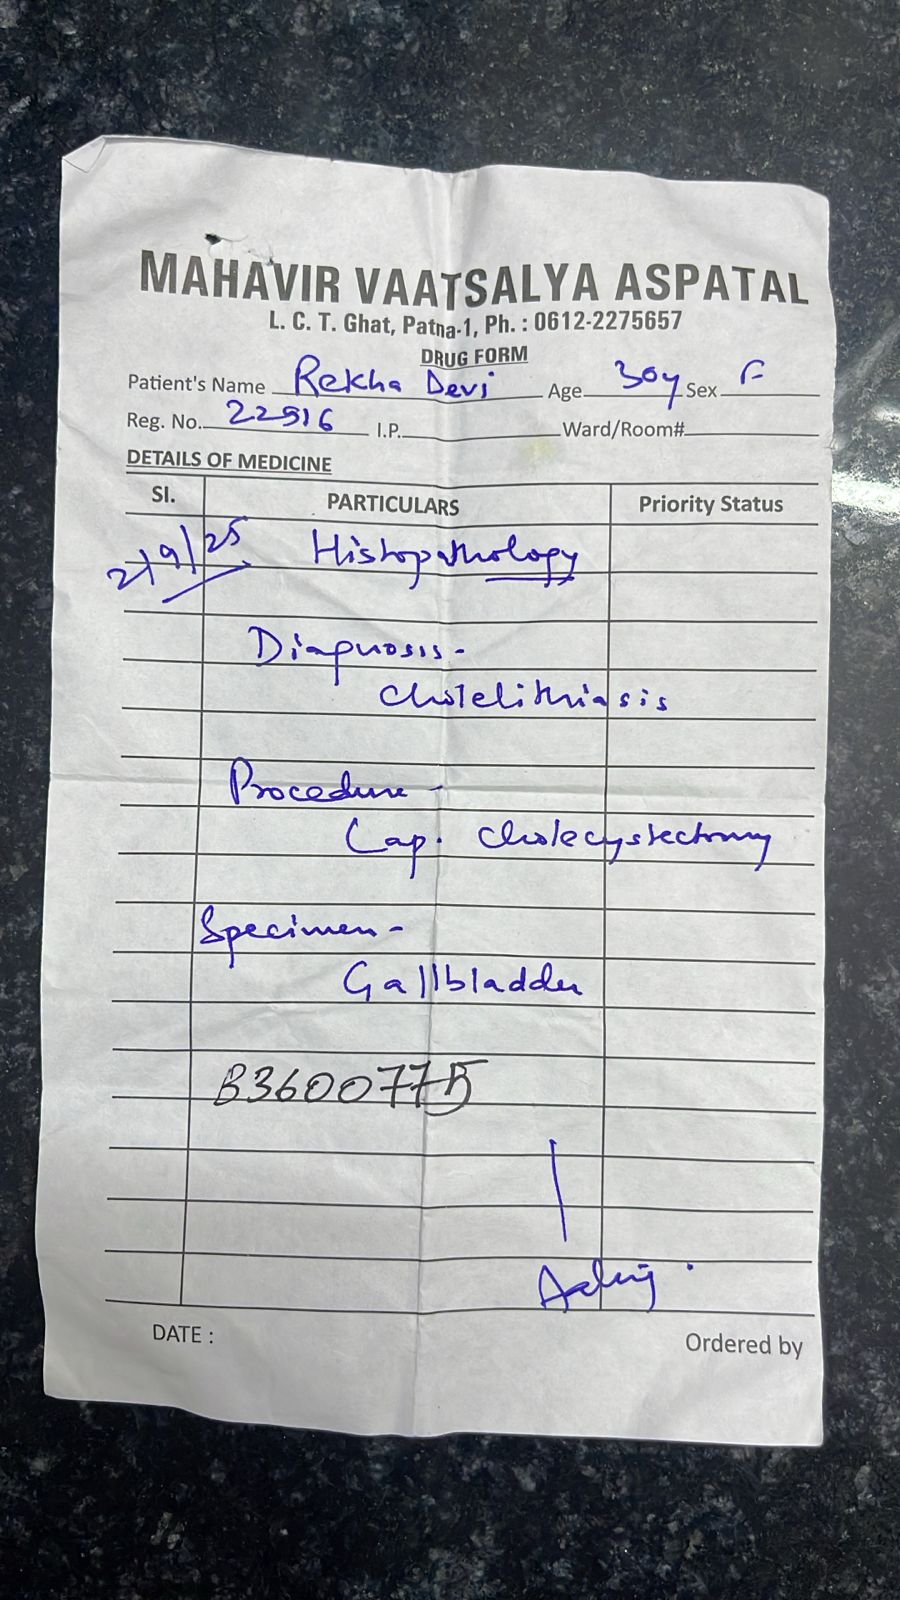 MAHAVIR VAATSALYA ASPATAL
L. C. T. Ghat, Patna-1, Ph. : 0612-2275657
DRUG FORM
Patient's Name Rekha Devi Age 30y Sex F
Reg. No. 22516 I.P. Ward/Room#
DETAILS OF MEDICINE
Sl. PARTICULARS Priority Status
2/9/25 Histopathology
Diagnosis -
Cholelithiasis
Procedure -
Lap. Cholecystectomy
Specimen -
Gallbladder
DATE :
Ordered by